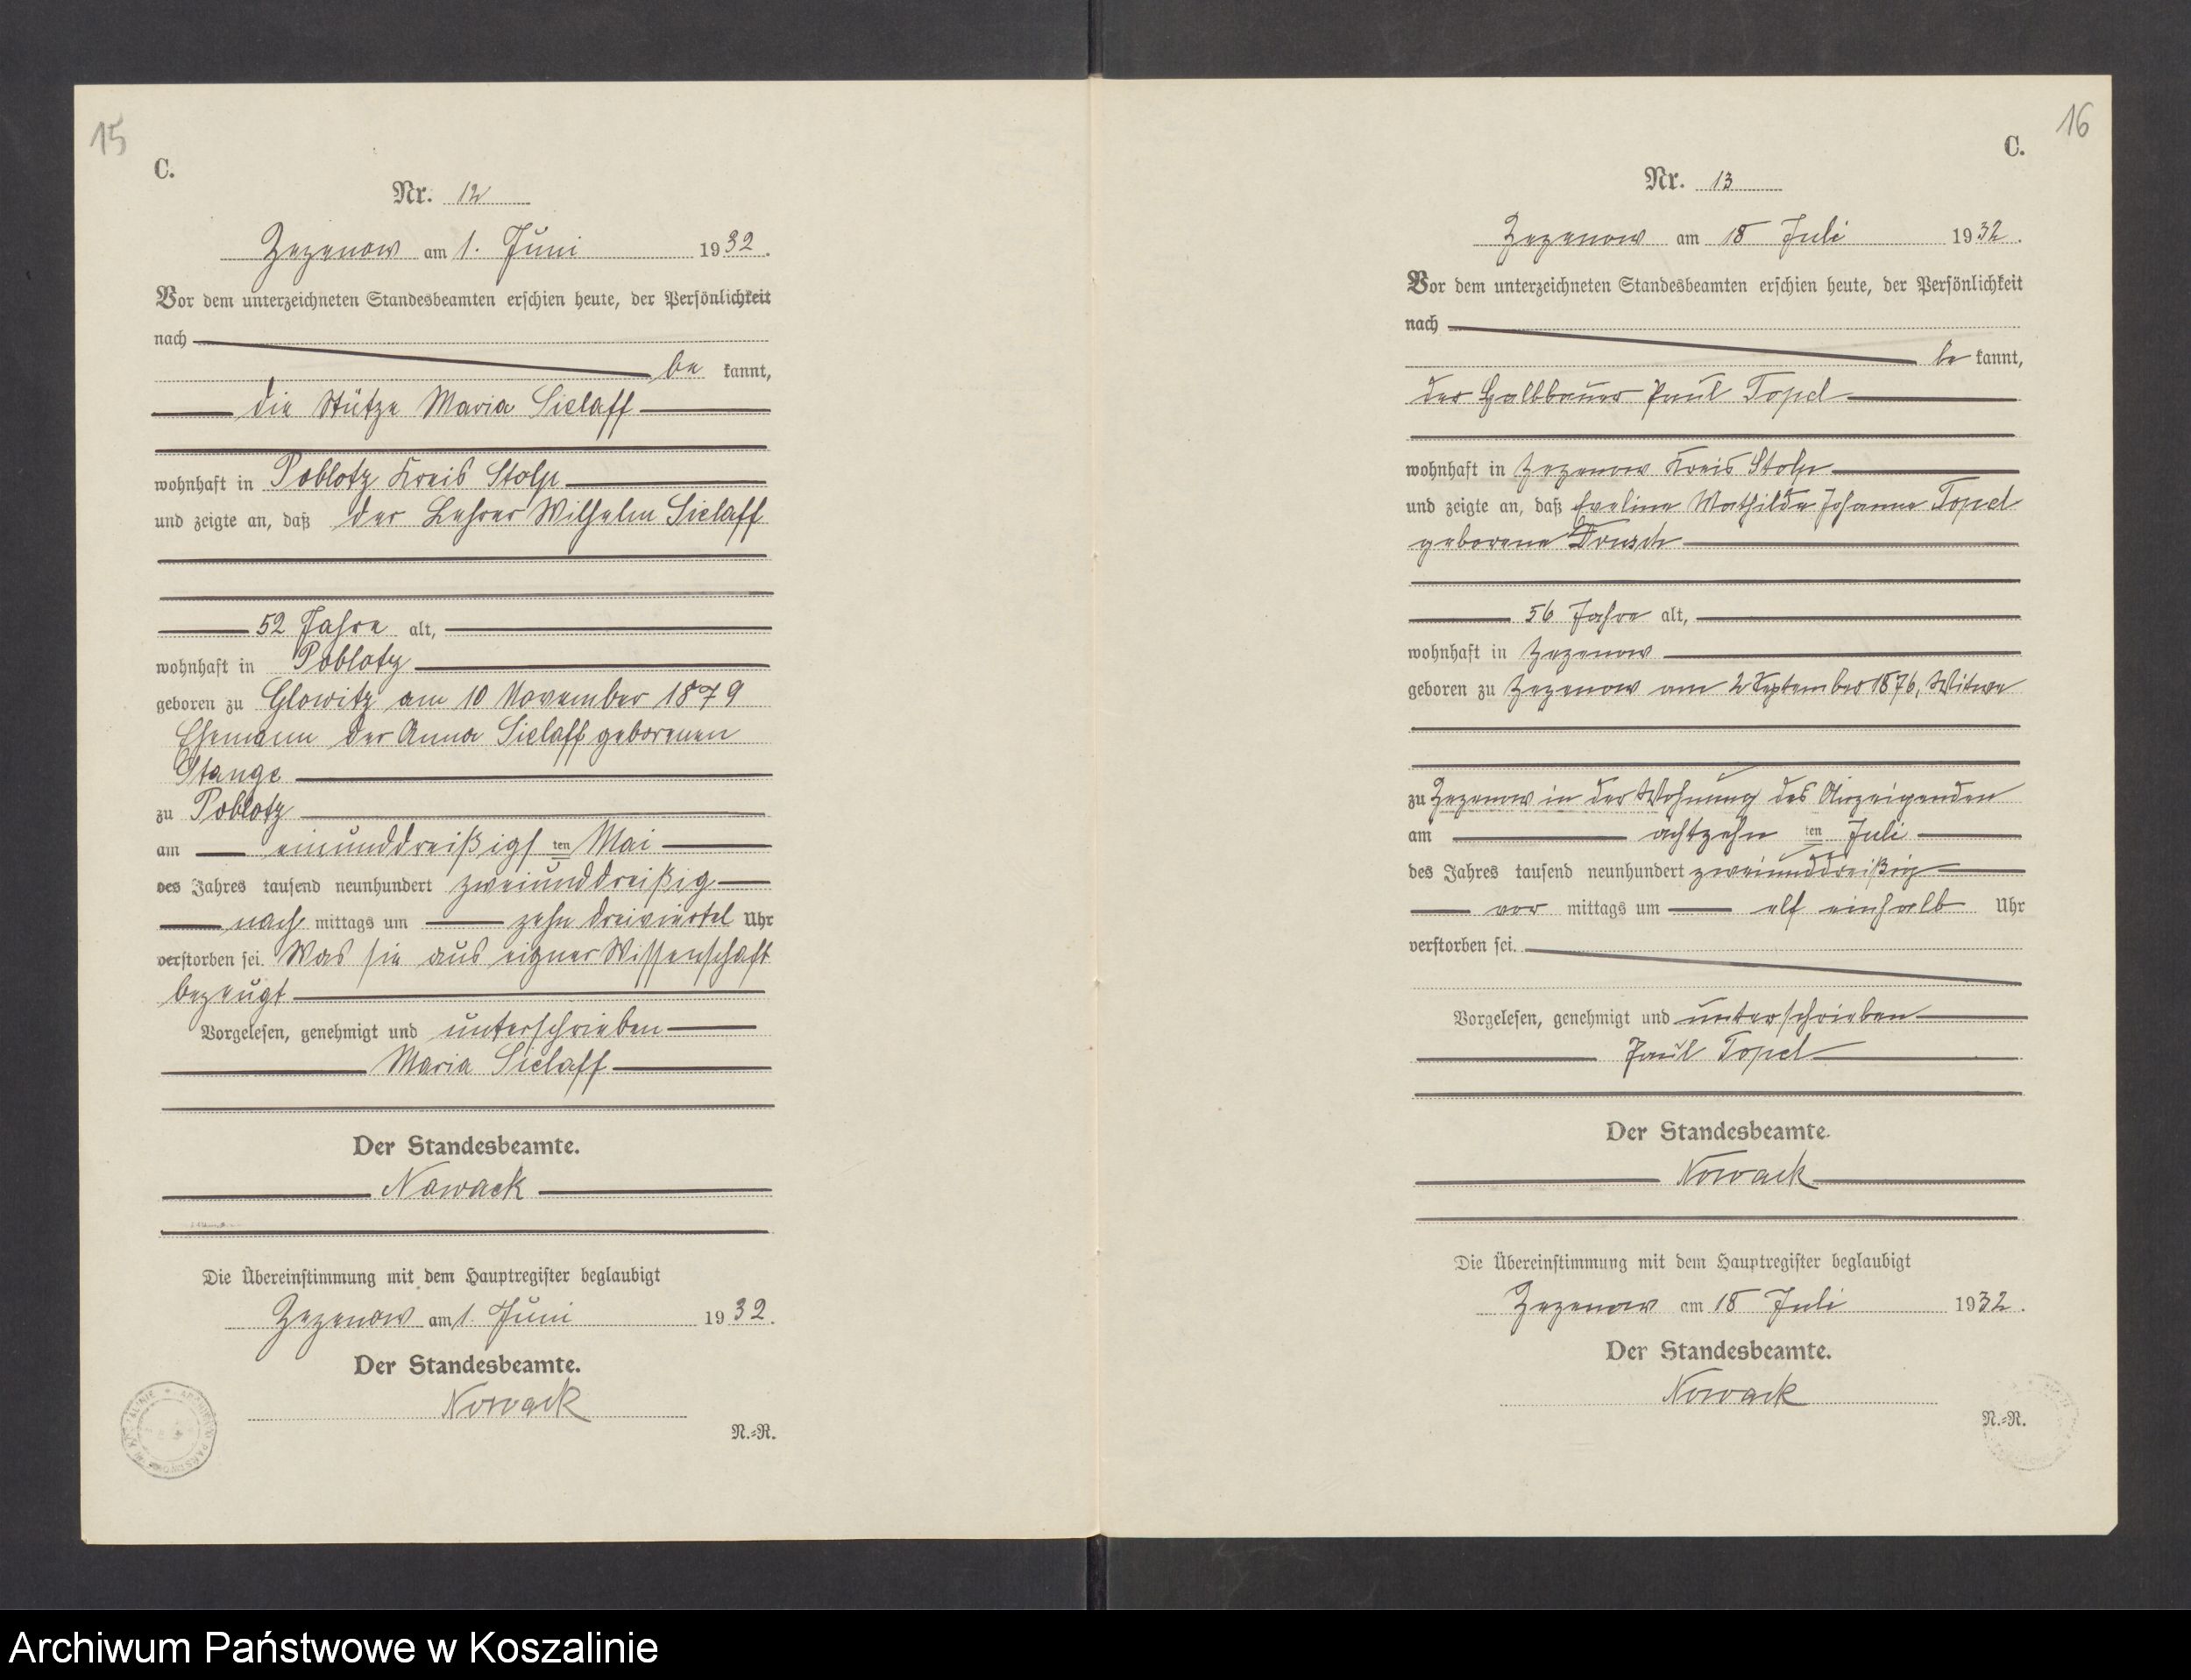 15
C.
Nr. 12
Zezenow am 1. Juni 1932.
Vor dem unterzeichneten Standesbeamten erschien heute, der Persönlichkeit
nach
be kannt,
die Stütze Maria Sielaff
wohnhaft in Poblotz Kreis Stolp
und zeigte an, daß der Lehrer Wilhelm Sielaff
52 Jahre alt,
wohnhaft in Poblotz
geboren zu Glowitz am 10 November 1879
Ehemann der Anna Sielaff geborenen
Stange
zu Poblotz
am einunddreißigsten Mai
des Jahres tausend neunhundert zweiunddreißig
nach mittags um zehn dreiviertel Uhr
verstorben sei. Was sie aus eigner Wissenschaft
bezeugt
Vorgelesen, genehmigt und unterschrieben
Maria Sielaff
Der Standesbeamte.
Nowack
Die Übereinstimmung mit dem Hauptregister beglaubigt
Zezenow am 1. Juni 1932.
Der Standesbeamte.
Nowack
N.=R.
16
C.
Nr. 13
Zezenow am 18 Juli 1932.
Vor dem unterzeichneten Standesbeamten erschien heute, der Persönlichkeit
nach
be kannt,
der Halbbauer Paul Topel
wohnhaft in Zezenow Kreis Stolp
und zeigte an, daß Eveline Mathilde Johanne Topel
geborene
56 Jahre alt,
wohnhaft in Zezenow
geboren zu Zezenow am 2 September 1876, Witwe
zu Zezenow in der Wohnung des Anzeigenden
am achtzehn ten Juli
des Jahres tausend neunhundert zweiunddreißig
vor mittags um elf einhalb Uhr
verstorben sei.
Vorgelesen, genehmigt und unterschrieben
Paul Topel
Der Standesbeamte.
Nowack
Die Übereinstimmung mit dem Hauptregister beglaubigt
Zezenow am 18 Juli 1932.
Der Standesbeamte.
Nowack
N.=R.
Archiwum Państwowe w Koszalinie